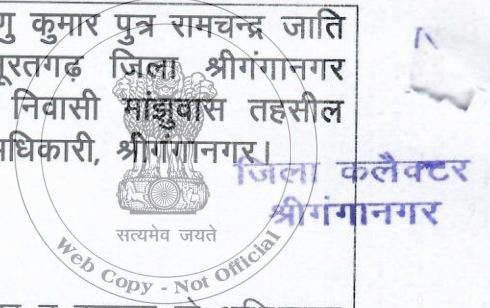 कुमार पुत्र रामचन्द्र जाति
सूरतगढ़ जिला श्रीगंगानगर
निवासी मांझुवास तहसील
श्रीगंगानगर।
जिला कलैक्टर
श्रीगंगानगर
सत्यमेव जयते
Web Copy - Not Official